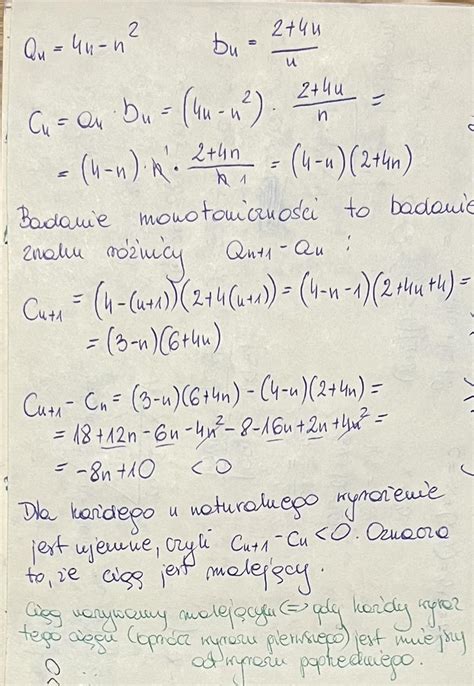 an = 4n - n²    bn = (2+4n)/n
Cn = an · bn = (4n - n²) · (2+4n)/n =
= (4-n) · n¹ · (2+4n)/n₁ = (4-n)(2+4n)
Badanie monotoniczności to badanie
znaku różnicy an+1 - an :
Cn+1 = (4-(n+1))(2+4(n+1)) = (4-n-1)(2+4n+4) =
= (3-n)(6+4n)
Cn+1 - Cn = (3-n)(6+4n) - (4-n)(2+4n) =
= 18+12n-6n-4n²-8-16n+2n+4n² =
= -8n+10 <0
Dla każdego n naturalnego wyrażenie
jest ujemne, czyli Cn+1 - Cn <0. Oznacza
to, że ciąg jest malejący.
Ciąg nazywamy malejącym (=> gdy każdy wyraz
tego ciągu (oprócz wyrazu pierwszego) jest mniejszy
od wyrazu poprzedniego.